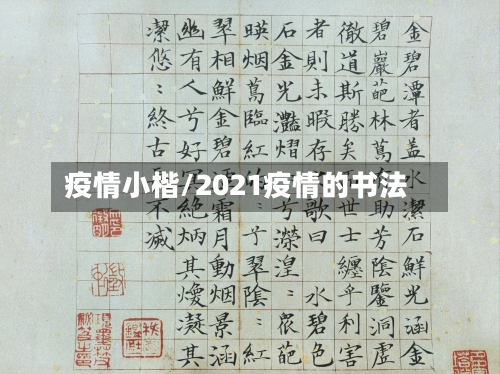 疫情小楷/2021疫情的书法
金碧潭者盖水潔石鮮光涵金
碧巖葩林蔦助芳陰鑒洞虚
徹道斯勝矣世士纏乎利害
者則未暇存歌曰水碧色
石金光灩熠兮濴湟::泉葩
暎烟蔦臨紅兮翠陰::紅
翠相鮮金碧霜月動烟景涵
幽有人兮好絶炳其煥凝其
潔悠::終古不滅